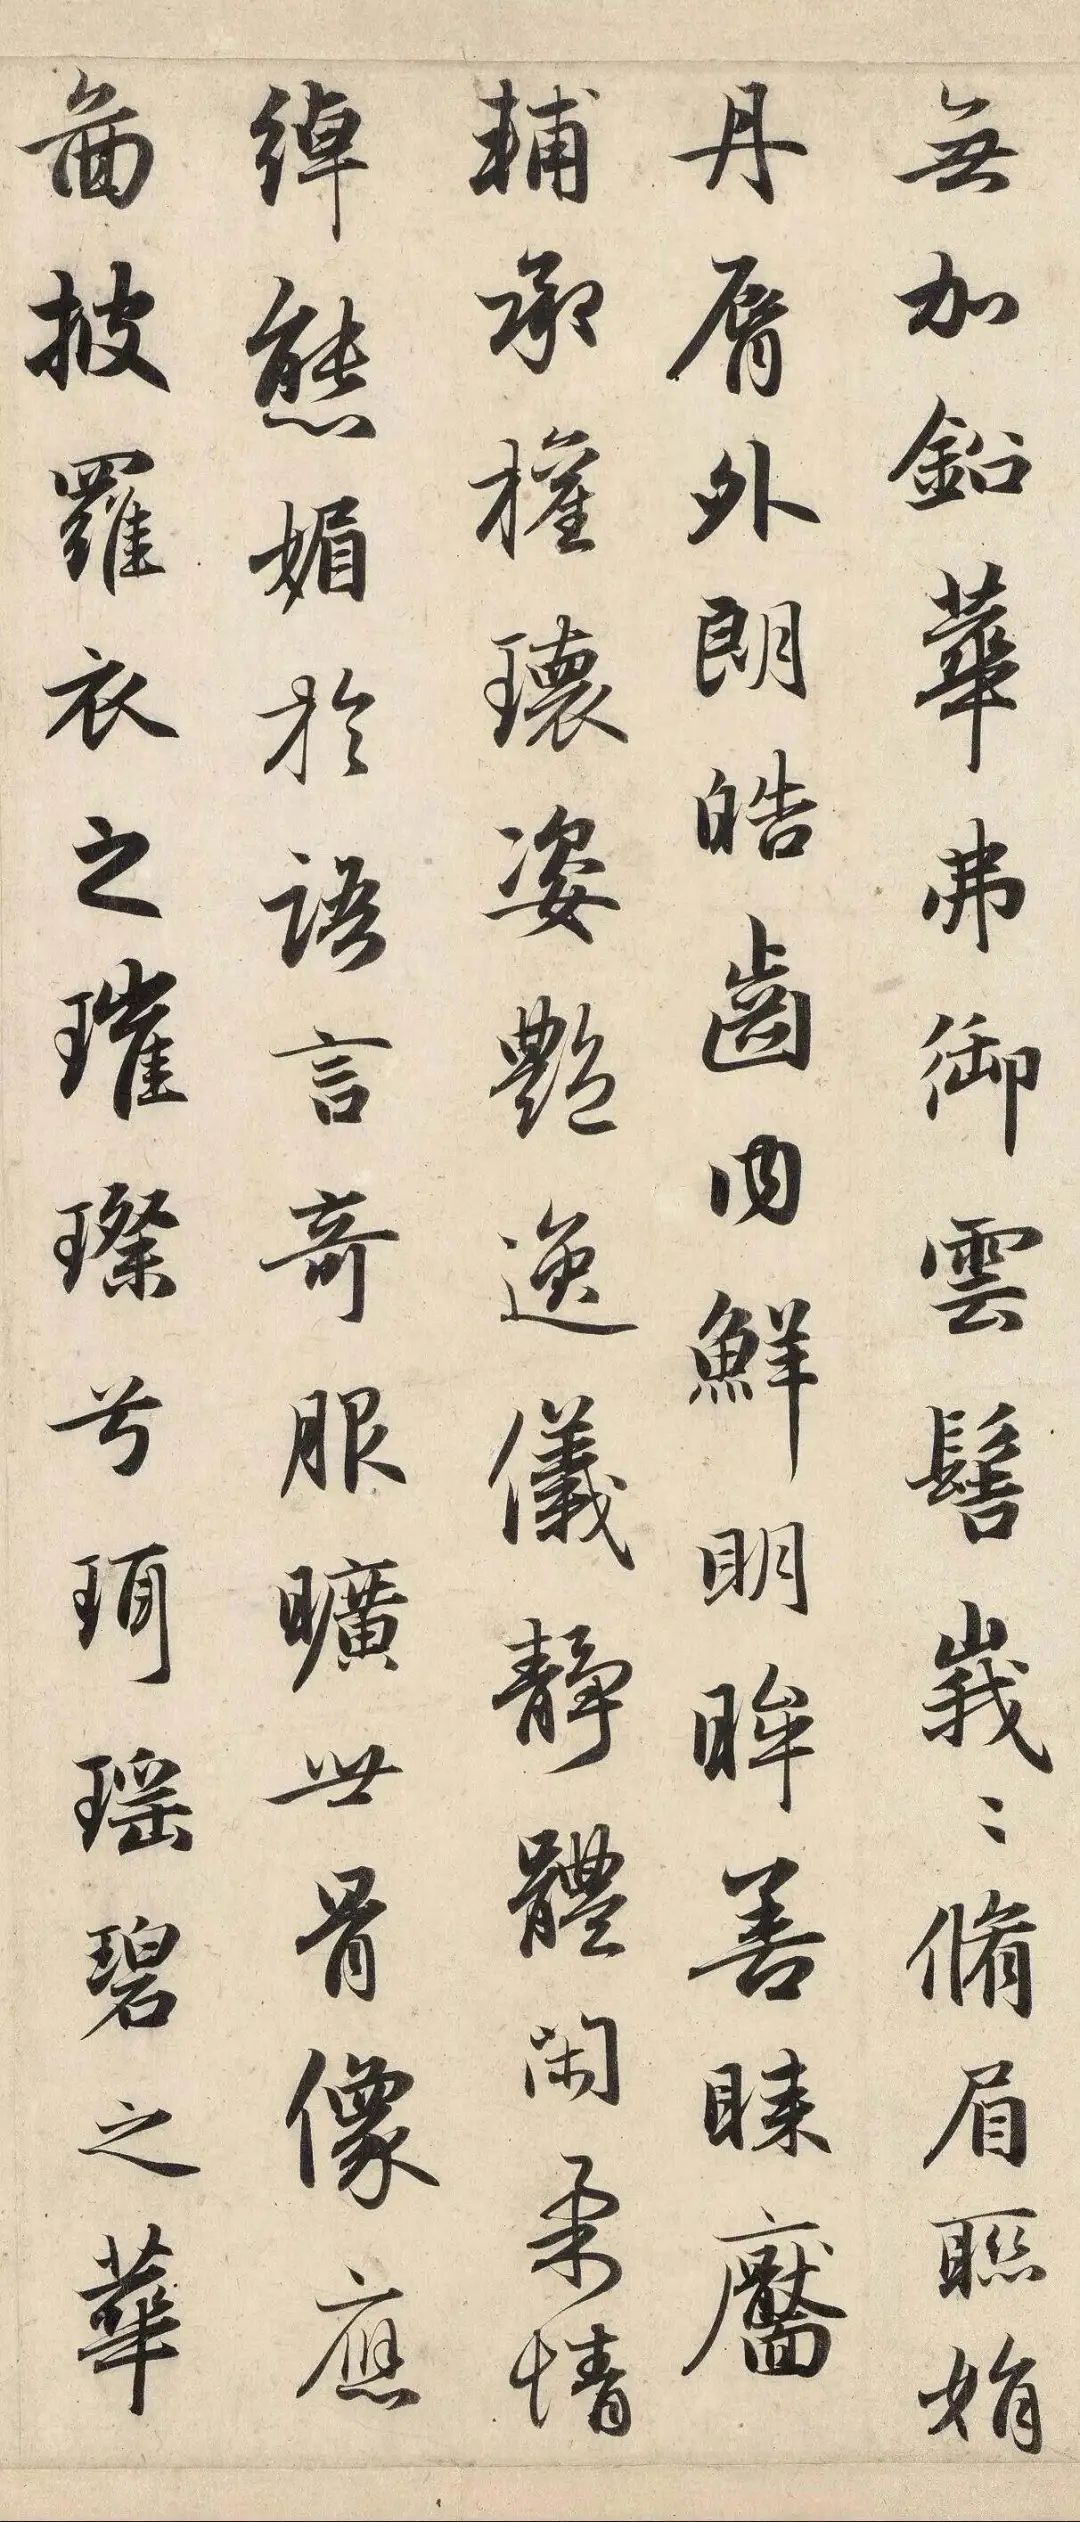 無加鉛華弗御雲髻峩〻脩眉聮娟
丹脣外朗皓齒内鮮明眸善睞靨
輔承權瓌姿艶逸儀靜體閑柔情
綽態媚於語言奇服曠世骨像應
啚披羅衣之璀璨兮珥瑶碧之華